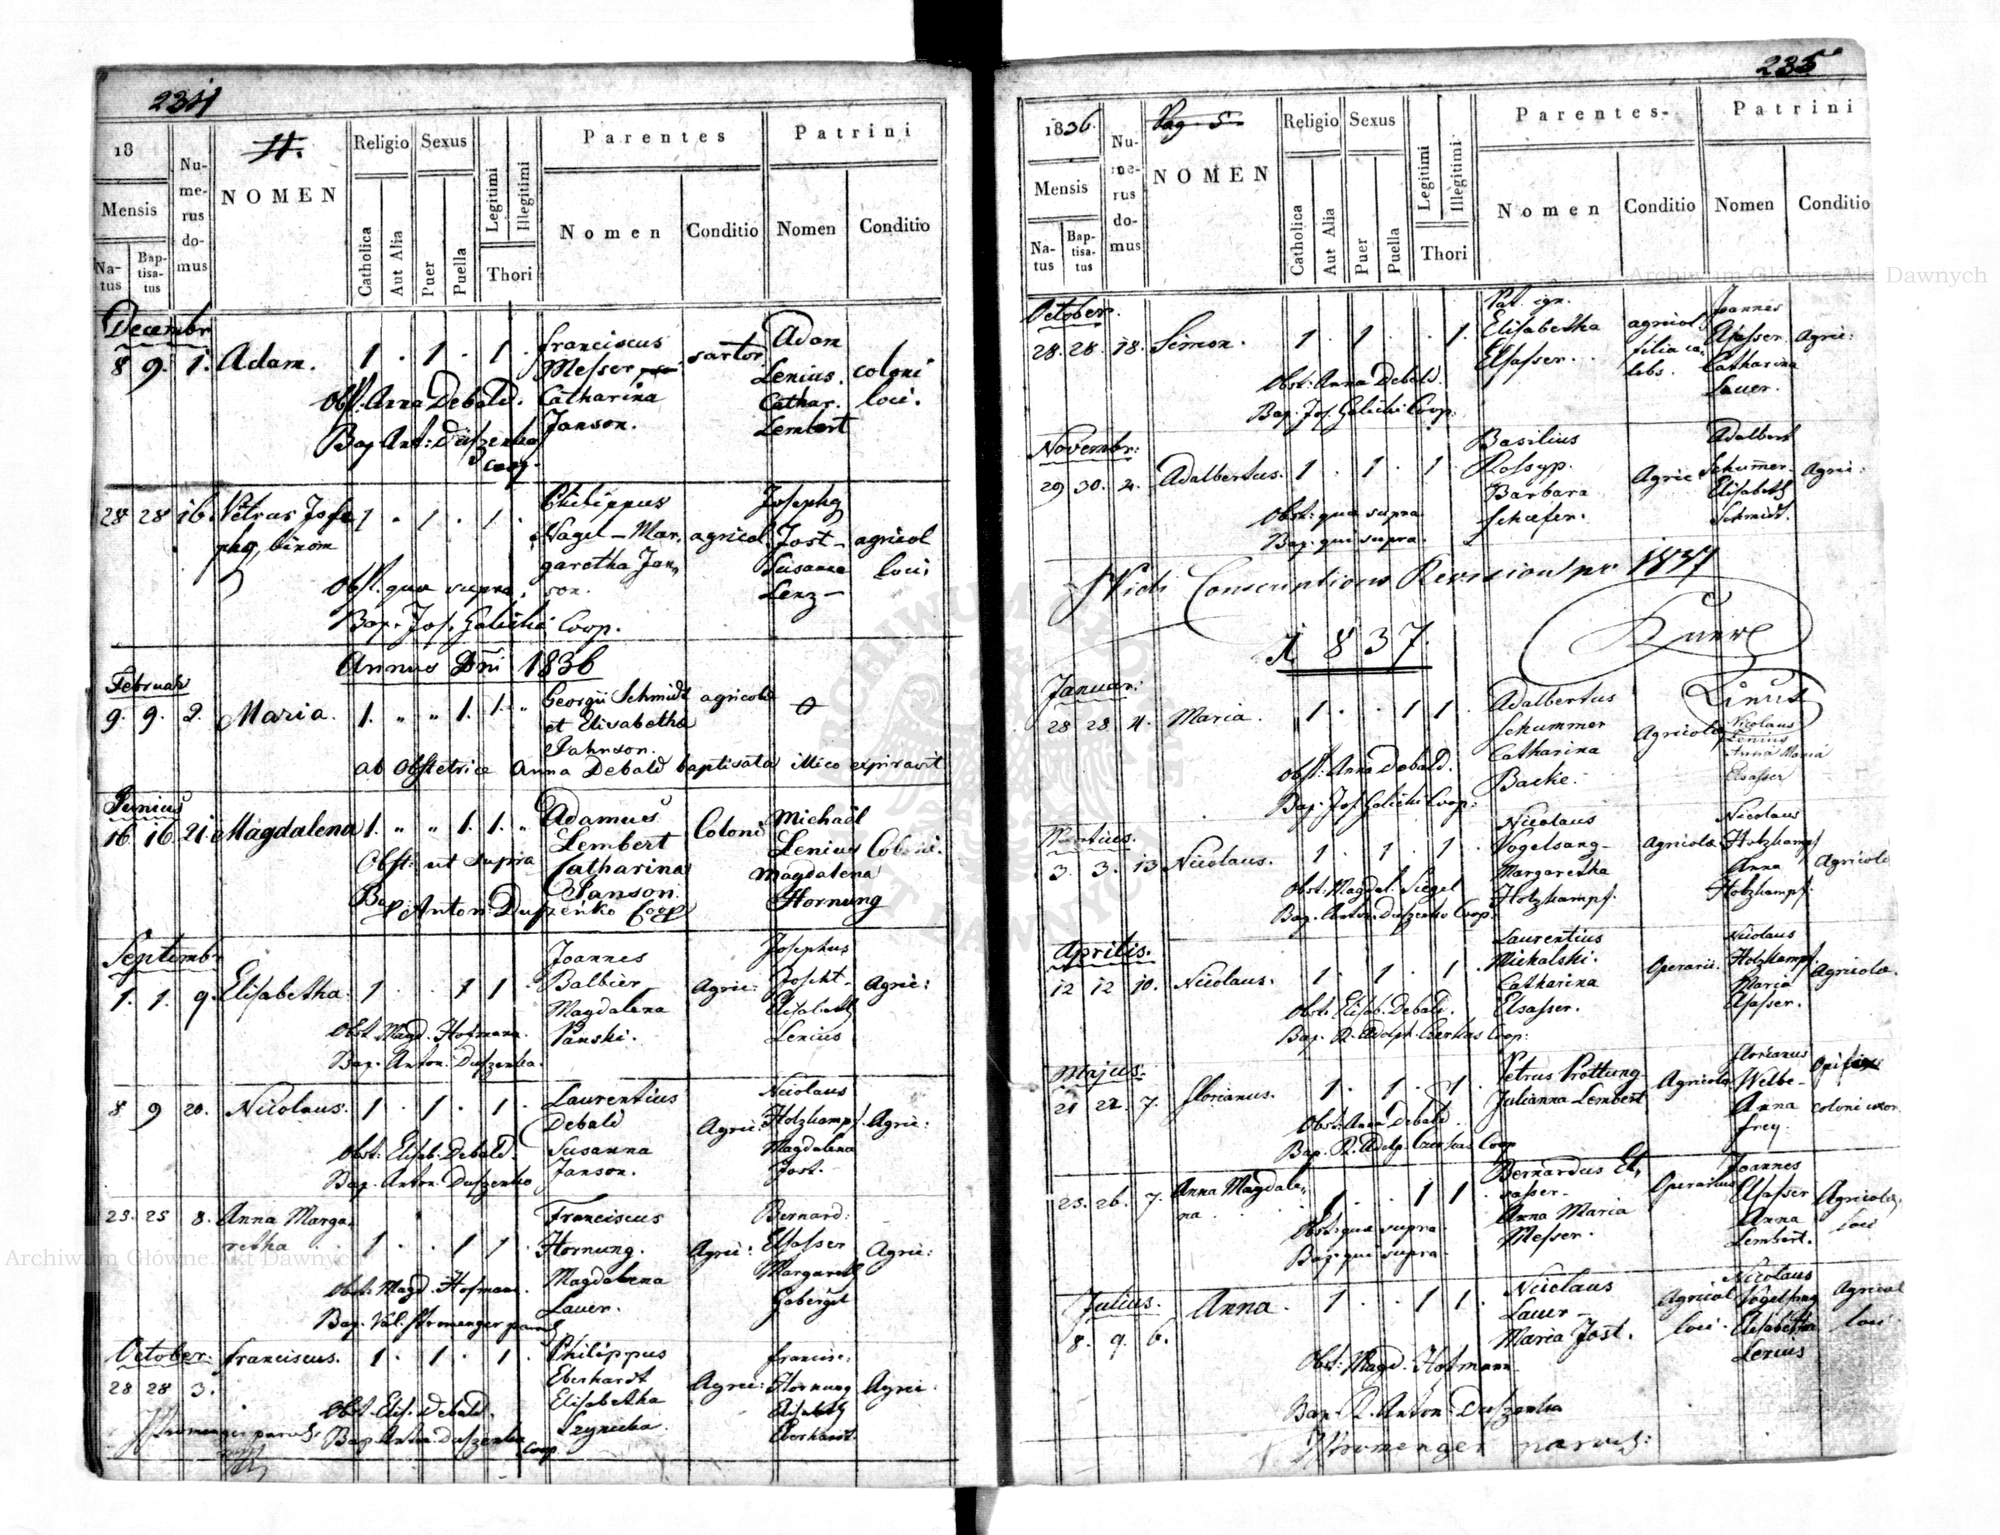 234
18
Mensis
Na-
tus
Bap-
tisa-
tus
Nu-
me-
rus
do-
mus
NOMEN
Religio
Catholica
Aut Alia
Sexus
Puer
Puella
Legitimi
Illegitimi
Thori
Parentes
Nomen
Conditio
Patrini
Nomen
Conditio
Decembr
8 9. 1. Adam. 1 . 1 . 1 .
Franciscus
Messer
Catharina
Janson.
sartor
Adam
Lenius.
Cathar.
Lembert
coloni
loci.
Obst. Anna Debald.
Bap. Ant: Duszenko
coop.
28 28 16. Petrus Jose
phq binom 1 . 1 . 1 .
Philippus
Nagel - Mar,
garetha Jan,
son.
agricol.
Josephq
Jost -
Susanna
Lenz -
agricol
loci
Obst. qua supra.
Bap. Jos. Galicki Coop.
Annus Dni 1836
Februar
9. 9. 2. Maria. 1. " " 1. 1. "
Georgii Schmidt
et Elisabetha
Jahnson.
agricola
ab Obstetrice Anna Debald baptisata illico expiravit
Junius
16 16. 21. Magdalena 1. " " 1. 1. "
Adamus
Lembert
Catharina
Janson.
Coloni
Michaël
Lenius
Magdalena
Hornung
Coloni.
Obst: ut supra
Bap Anton Duszenko Coop
Septembr
1. 1. 9. Elisabetha. 1 . . 1 1 .
Joannes
Balbier
Magdalena
Panski.
Agric:
Josephus
Elisabeth
Lenius
Agric:
Obst. Magd. Hofmann.
Bap. Anton. Duszenko.
8 9 20. Nicolaus. 1 . 1 . 1 .
Laurentius
Debald
Susanna
Janson.
Agric:
Nicolaus
Holzkampf.
Magdalena
Jost.
Agric:
Obst: Elisab. Debald.
Bap. Anton. Duszenko
25. 25 8. Anna Marga,
retha 1 . . 1 1 .
Franciscus
Hornung.
Magdalena
Lauer.
Agric:
Bernard:
Elsasser
Margareth
Agric:
Obst: Magd. Hofmann.
Bap. Val. Stromenger paroch
October. Franciscus. 1 . 1 . 1 .
28 28 3.
Philippus
Eberhardt
Elisabetha
Agric:
Francisc:
Hornung
Elisabeth
Eberhardt.
Agric:
Obst. Elis. Debald.
Bap. Anton. Duszenko Coop
Stromenger paroch:
235
1836.
Pag. 5
Mensis
Na-
tus
Bap-
tisa-
tus
Nu-
me-
rus
do-
mus
NOMEN
Religio
Catholica
Aut Alia
Sexus
Puer
Puella
Legitimi
Illegitimi
Thori
Parentes
Nomen
Conditio
Patrini
Nomen
Conditio
October.
28. 28. 18. Simon. 1 . 1 . . 1.
Pat. ign.
Elisabetha
Elsasser.
agricol
filia cae,
lebs.
Joannes
Elsasser
Catharina
Lauer.
Agric:
Obst: Anna Debald.
Bap. Jos. Galicki Coop.
Novembr:
29 30. 2. Adalbertus. 1 . 1 . 1 .
Basilius
Rossyp.
Barbara
Schaefer.
Agric
Adalbert
Schumer
Elisabeth
Schmidt.
Agric:
Obst: qua supra
Bap. qui supra.
Vidi Conscriptions Revision pr 1837
A 1837.
Januar:
28 28 4. Maria. 1 . . 1 1 .
Adalbertus
Schummer
Catharina
Backe.
Agricola
Nicolaus
Lenius
Anna Maria
Elsasser
Obst: Anna Debald.
Bap. Jos. Galicki Coop:
Martius.
3. 3. 13 Nicolaus. 1 . 1 . 1 .
Nicolaus
Vogelsang -
Margaretha
Holzkampf.
Agricola
Nicolaus
Holzkampf
Anna
Holzkampf.
Agricola
Obst: Magdal. Siegel
Bap. Anton. Duszenko Coop.
Aprilis.
12 12 10. Nicolaus. 1 . 1 . 1 .
Laurentius
Michalski.
Catharina
Elsasser.
Operarii.
Nicolaus
Holzkampf.
Maria
Elsasser.
Agricola.
Obst. Elisab. Debald.
Bap. R. Adolph. Czerkas Coop:
Majus.
21 22. 7. Florianus. 1 . 1 . 1 .
Petrus Prottung
Julianna Lembert
Agricola
Florianus
Welbe -
Anna
Frey.
coloni uxor.
Obst: Anna Debald.
Bap. R. Adolp. Czerkas Coop
25. 26. 7. Anna Magdale,
na . 1 . . 1 1 .
Bernardus El,
sasser -
Anna Maria
Messer.
Operarius
Joannes
Elsasser
Anna
Lembert.
Agricola,
loci
Obst: qua supra.
Bap: qui supra.
Julius.
8. 9. 6. Anna. 1 . . 1 1 .
Nicolaus
Lauer -
Maria Jost.
Agricol
loci.
Nicolaus
Vogelsang
Elisabetha
Lenius
Agricol
loci.
Obst: Magd. Hofmann
Bap. R. Anton. Duszenko
Stromenger paroch:
Archiwum Główne Akt Dawnych
Archiwum Główne Akt Dawnych